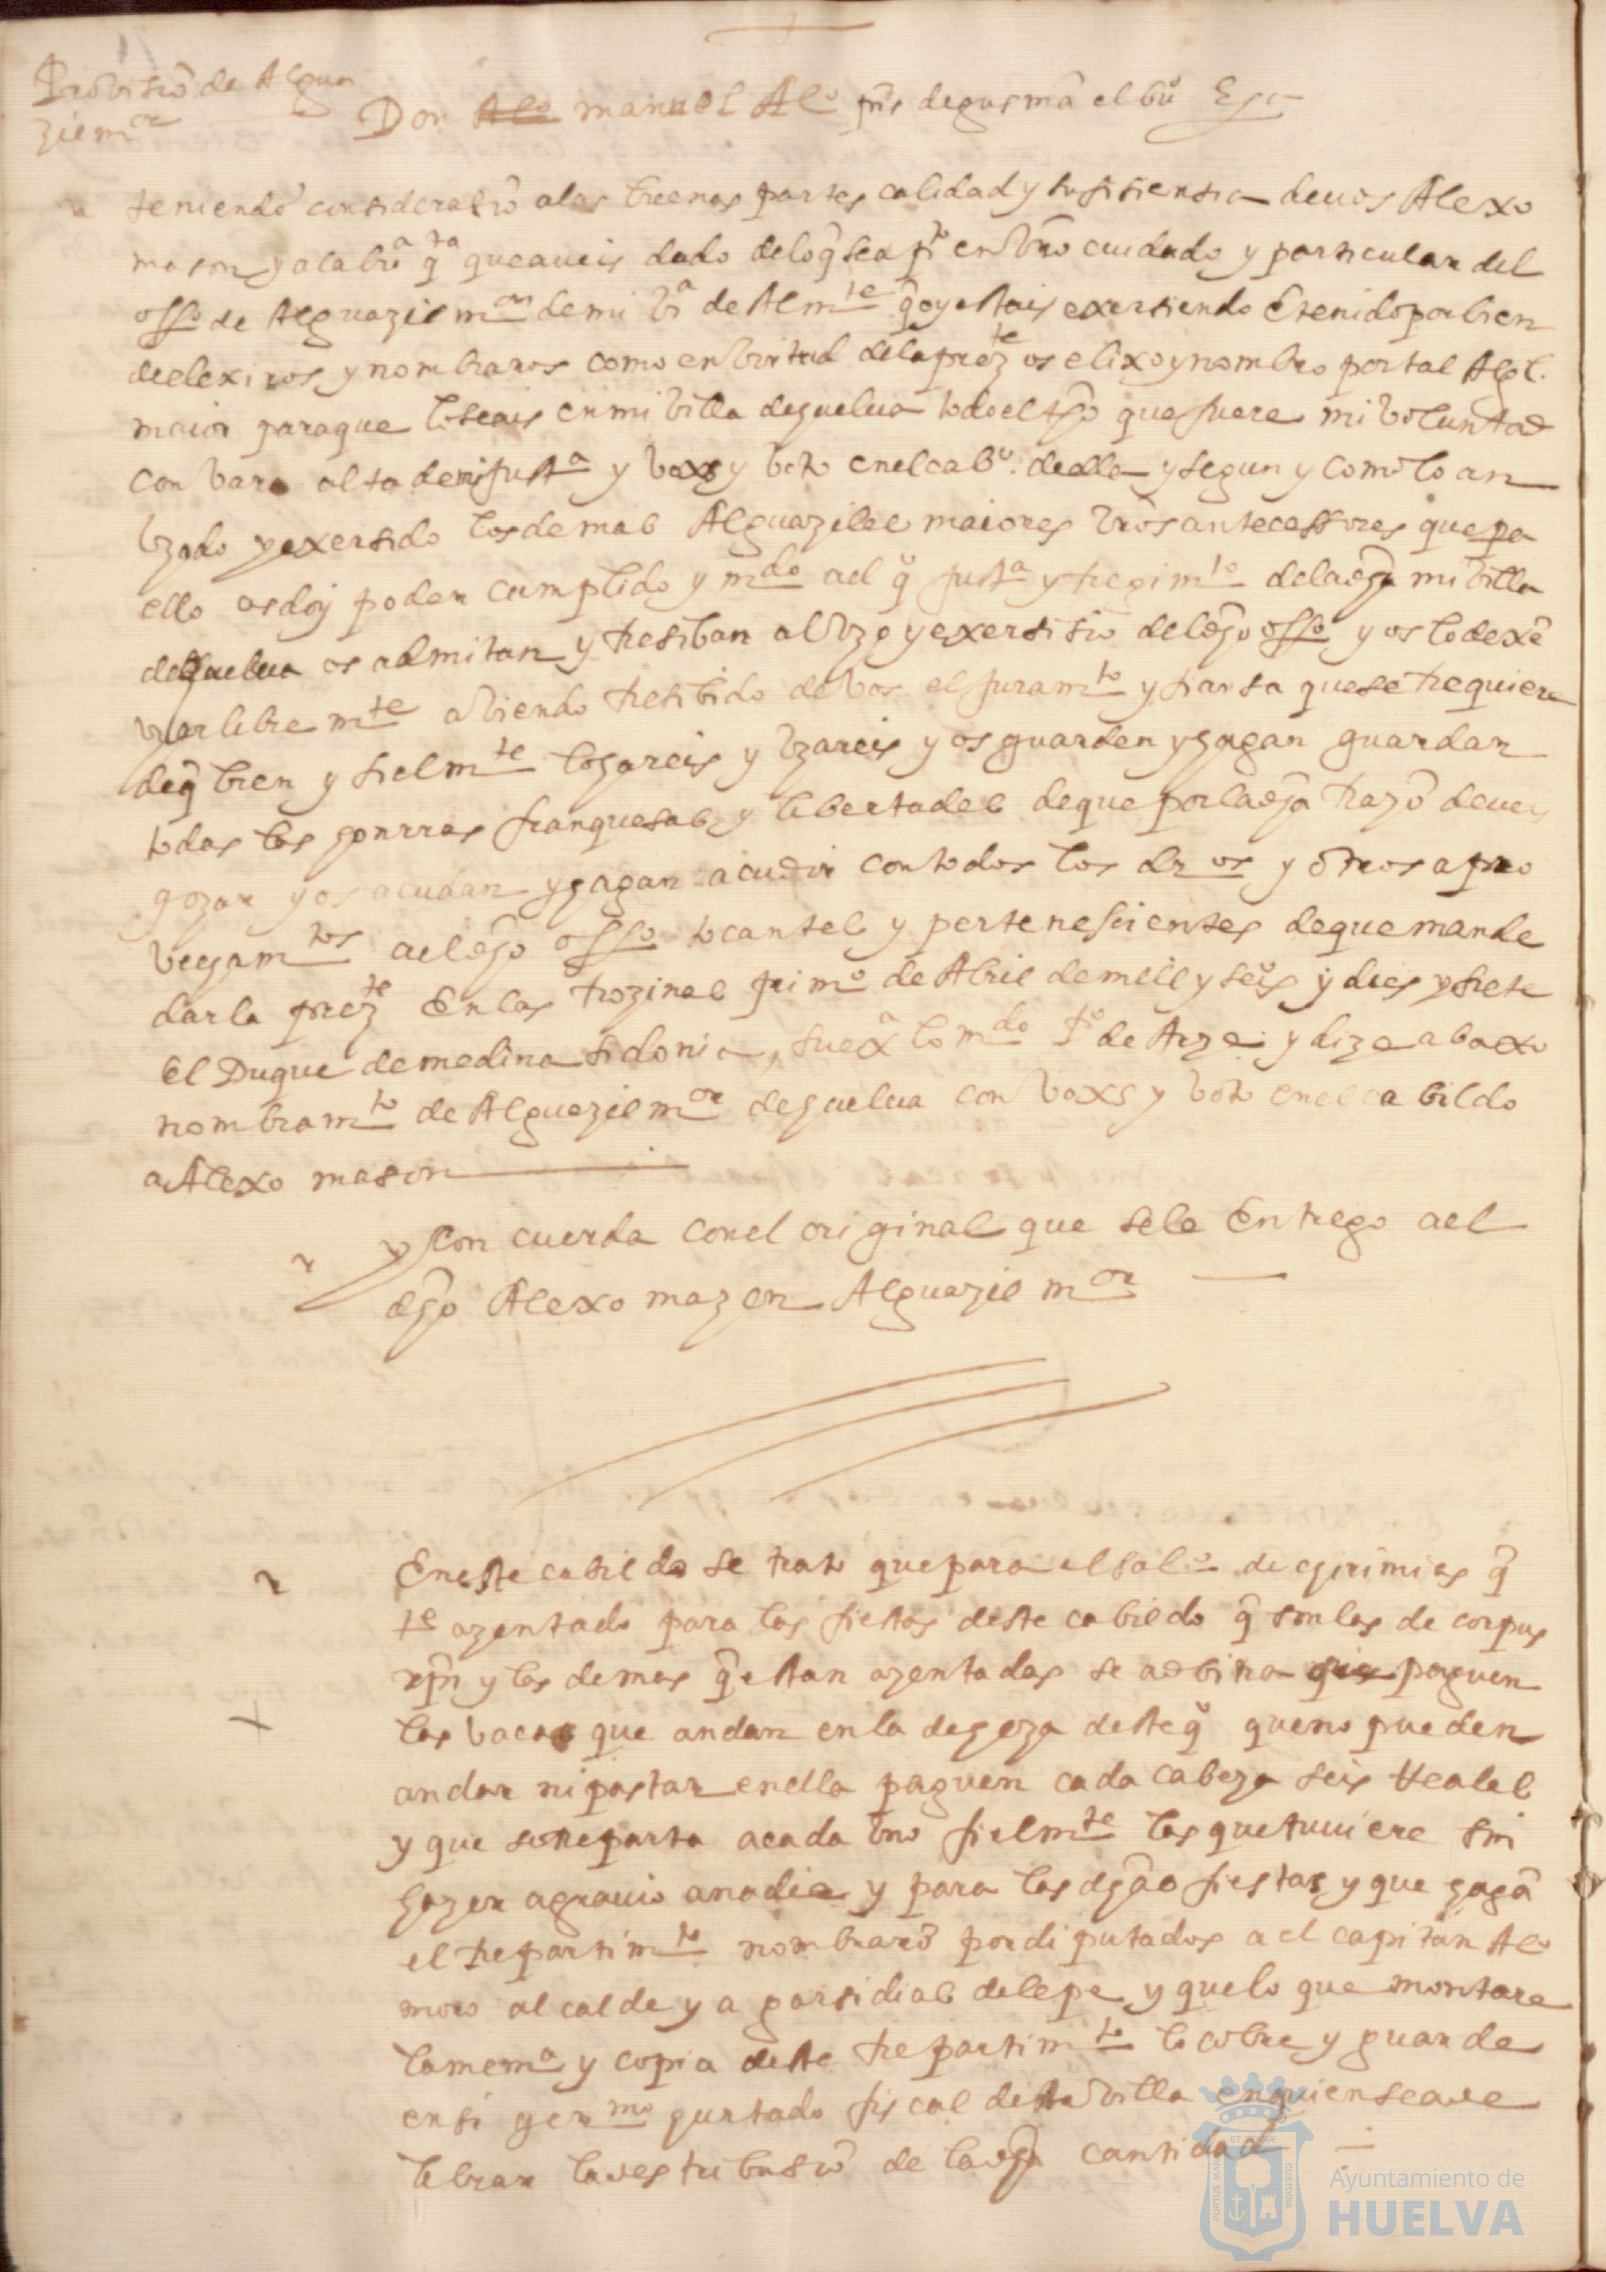 Provisiō de Algua
zil mor
Don Alo manuel Alo prs de gusmā el buo Ettª
teniendo consideratiō a las buenas partes calidad y sufisiensia de uos Alexo
mason y a la bra qta que aueis dado de lo q se a pto en vro cuidado y particular del
offo de Alguazil mor de mi va de Almte q oy estais exersiendo E tenido por bien
de elexiros y nombraros como en virtud de la prezte os elixo y nombro por tal Algl.
maior para que lo seais en mi villa de guelua todo el tpo que fuere mi voluntad
con vara alta de mi justa y vox y voto en el cabo. de ella y segun y como lo an
vzado y exersido los demas Alguaziles maiores vros antecessores que pa
ello os doy poder cumplido y mdo a el qo justa y regimto de la dha mi villa
de guelua os admitan y resiban al vzo y exersisio del dho offo y os lo dexē
vzar libremte abiendo resibido de vos el juramto y fiansa que se requiere
de q bien y fielmte lo hareis y vzareis y os guarden y hagan guardar
todas las honrras franquesas y libertades de que por la dha razō deueis
gozar y os acudan y hagan acudir con todos los dros y otros apro
vechamtos a el dho offo tocantes y pertenesientes de que mande
dar la prezte En las rozinas primo de Abril de mill y seis y dies y siete
el Duque de medina sidonia, su exa lo mdo fo de Arze y dize abaxo
nombramto de Alguazil mor de guelua con voxs y voto en el cabildo
a Alexo mason
y concuerda con el original que se le Entrego a el
dho Alexo mazon Alguazil mor
En este cabildo se trato que para el salo de chirimias q
te azentado para las fiestas deste cabildo q son las de corpus
xpi y las demas q estan azentadas se adbitra que paguen
las vacas que andan en la deheza deste qo que no pueden
andar ni pastar en ella paguen cada cabeza seis Reales
y que se reparta a cada vno fielmte las que tuuiere sin
hazer agrauio a nadie y para las dhas fiestas y que hagā
el repartimto nombrarō por diputados a el capitan Alo
moro alcalde y a garsi dias de lepe y que lo que montare
la mema y copia deste repartimto lo cobre y guarde
en si germo hurtado fiscal desta villa en quien se a de
librar la destribusiō de la dha cantidad
ET TERRÆ
PORTUS MARIS
CUSTODIA
Ayuntamiento de
HUELVA